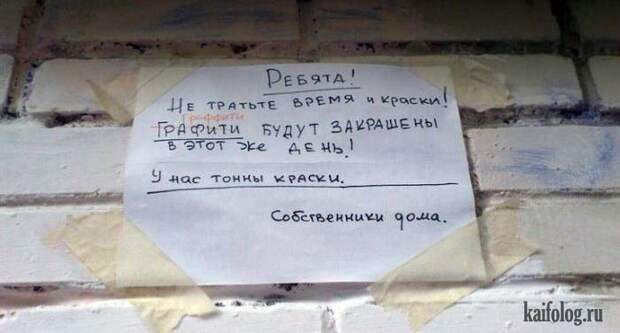 Ребята!
Не тратьте время и краски!
Граффити
Графити будут закрашены
в этот же день!
У нас тонны краски.
Собственники дома.
kaifolog.ru